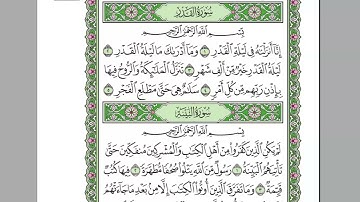 سُورَةُ القَدْرِ
بِسْمِ اللَّهِ الرَّحْمَٰنِ الرَّحِيمِ
إِنَّا أَنزَلْنَاهُ فِي لَيْلَةِ الْقَدْرِ ١ وَمَا أَدْرَاكَ مَا لَيْلَةُ الْقَدْرِ ٢
لَيْلَةُ الْقَدْرِ خَيْرٌ مِّنْ أَلْفِ شَهْرٍ ٣ تَنَزَّلُ الْمَلَائِكَةُ وَالرُّوحُ فِيهَا
بِإِذْنِ رَبِّهِم مِّن كُلِّ أَمْرٍ ٤ سَلَامٌ هِيَ حَتَّىٰ مَطْلَعِ الْفَجْرِ ٥
سُورَةُ البَيِّنَةِ
بِسْمِ اللَّهِ الرَّحْمَٰنِ الرَّحِيمِ
لَمْ يَكُنِ الَّذِينَ كَفَرُوا مِنْ أَهْلِ الْكِتَابِ وَالْمُشْرِكِينَ مُنفَكِّينَ حَتَّىٰ
تَأْتِيَهُمُ الْبَيِّنَةُ ١ رَسُولٌ مِّنَ اللَّهِ يَتْلُو صُحُفًا مُّطَهَّرَةً ٢ فِيهَا كُتُبٌ
قَيِّمَةٌ ٣ وَمَا تَفَرَّقَ الَّذِينَ أُوتُوا الْكِتَابَ إِلَّا مِن بَعْدِ مَا جَاءَتْهُمُ